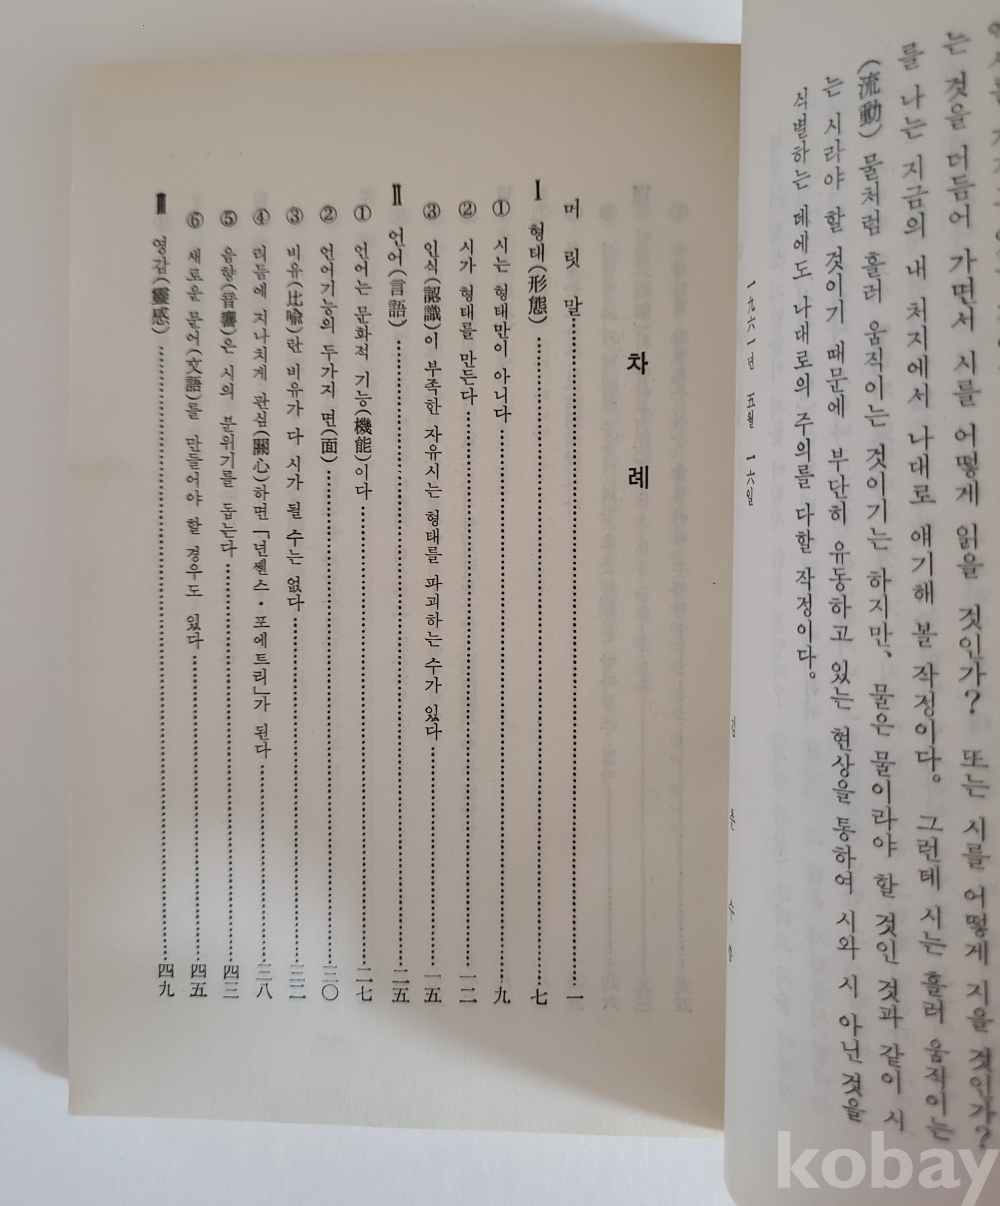 는 것을 더듬어 가면서 시를 어떻게 읽을 것인가? 또는 시를 어떻게 지을 것인가?
를 나는 지금의 내 처지에서 나대로 얘기해 볼 작정이다. 그런데 시는 흘러 움직이는
(流動) 물처럼 흘러 움직이는 것이기는 하지만, 물은 물이라야 할 것인 것과 같이 시
는 시라야 할 것이기 때문에 부단히 유동하고 있는 현상을 통하여 시와 시 아닌 것을
식별하는 데에도 나대로의 주의를 다할 작정이다.
一九六一년 五월 一六일
김 춘 수
차 례
머 릿 말 一
Ⅰ 형태(形態) 七
① 시는 형태만이 아니다 九
② 시가 형태를 만든다 一二
③ 인식(認識)이 부족한 자유시는 형태를 파괴하는 수가 있다 一五
Ⅱ 언어(言語) 二五
① 언어는 문화적 기능(機能)이다 二七
② 언어기능의 두가지 면(面) 三〇
③ 비유(比喩)란 비유가 다 시가 될 수는 없다 三二
④ 리듬에 지나치게 관심(關心)하면 「넌쎈스·포에트리」가 된다 三八
⑤ 음향(音響)은 시의 분위기를 돕는다 四三
⑥ 새로운 문어(文語)를 만들어야 할 경우도 있다 四五
Ⅲ 영감(靈感) 四九
kobay